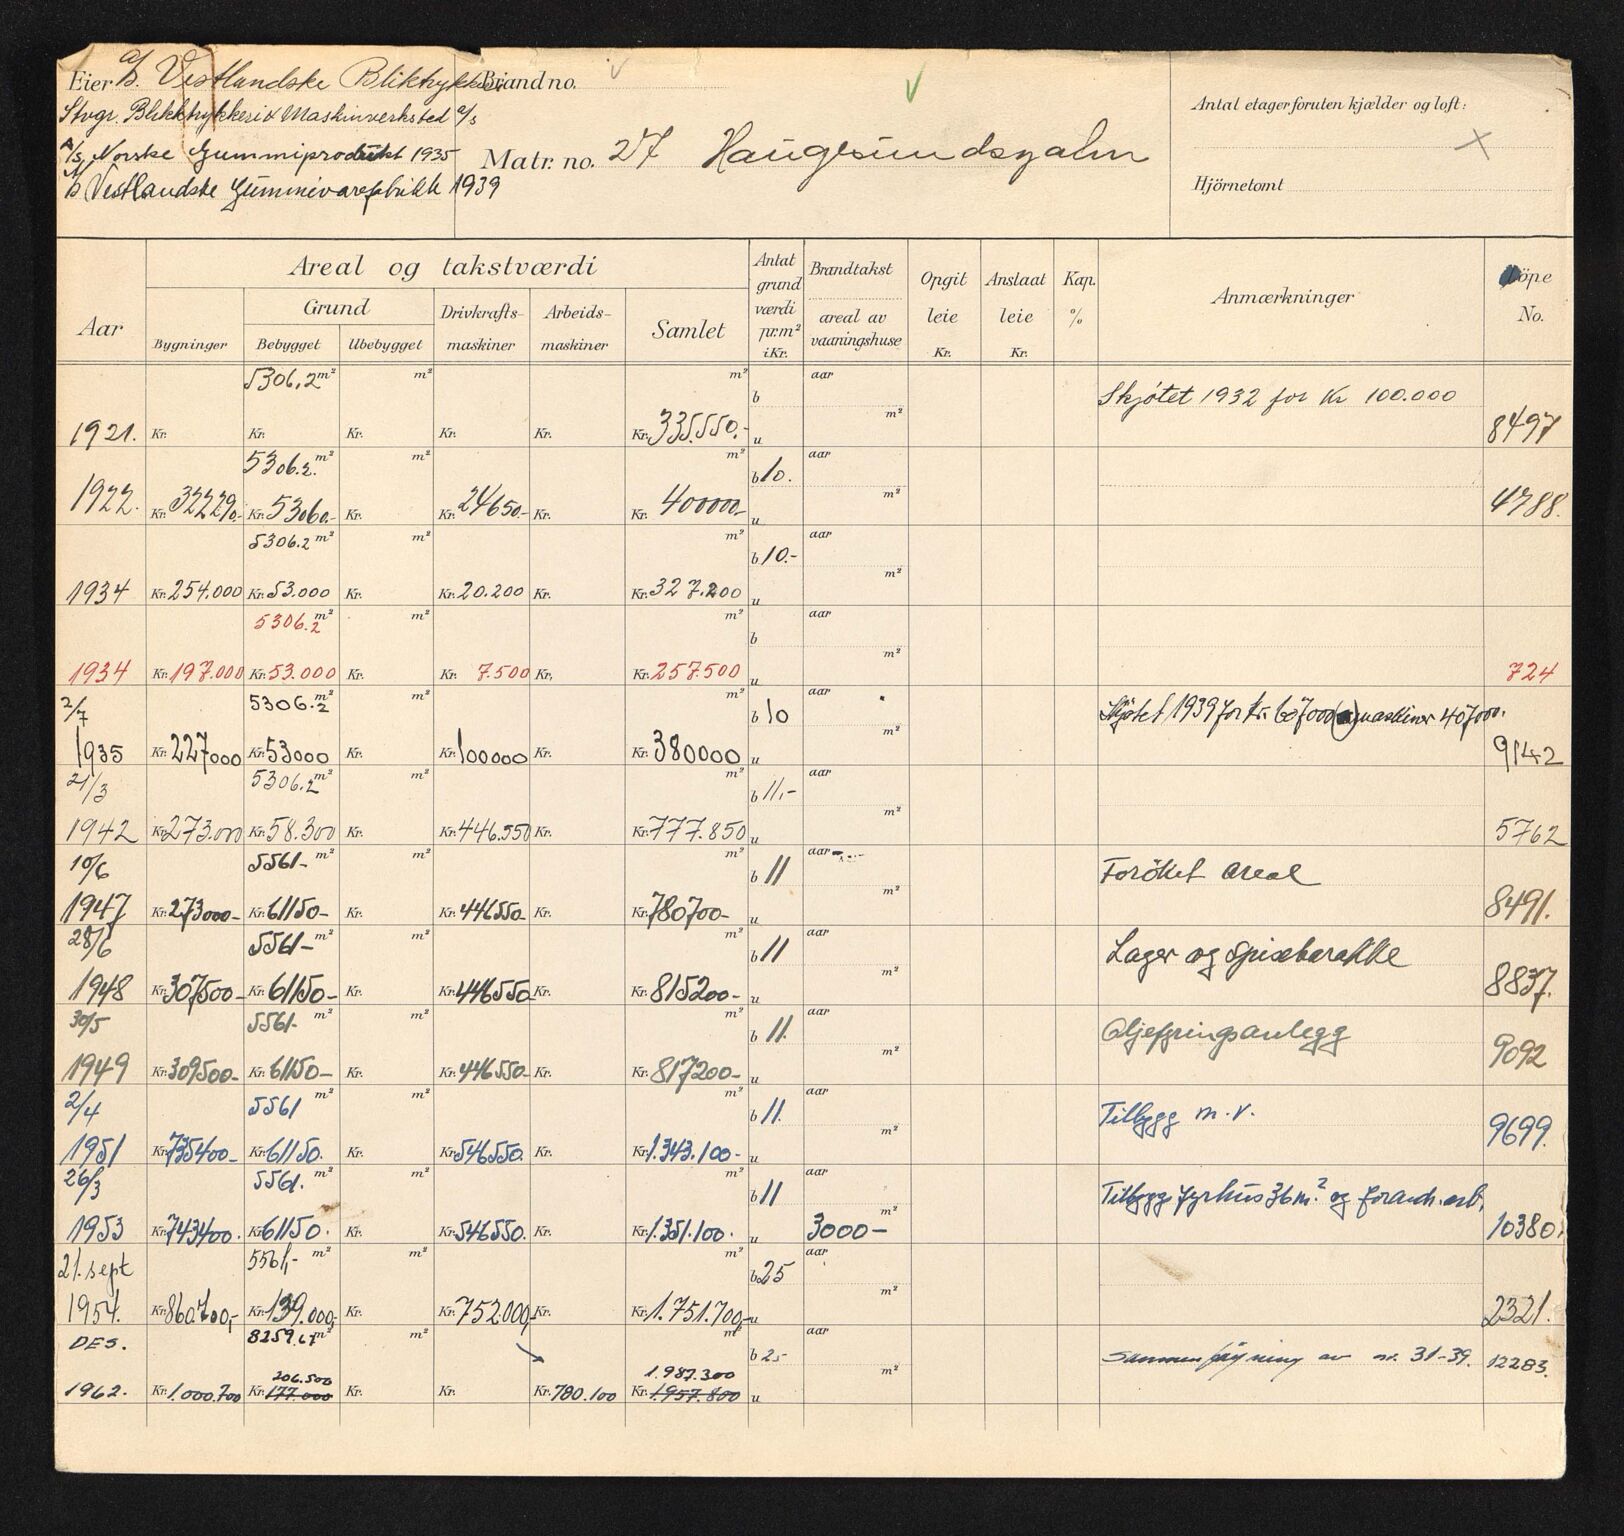 Eier A/S. Vestlandske Bliktrykkeri Brandno.
Stvgr. Blikktrykkeri & Maskinverksted A/S
A/S Norske Gummiprodukt 1935
A/S Vestlandske Gummivarefabrikk 1939
Matr. no. 27 Haugesundsgaten
Antal etager foruten kjælder og loft:
X
Hjörnetomt
Aar
Areal og takstværdi
Bygninger
Grund
Bebygget Ubebygget
Drivkrafts-maskiner
Arbeids-maskiner
Samlet
Antat grund værdi pr. m² i Kr.
Brandtakst
areal av vaaningshuse
Opgit leie Kr.
Anslaat leie Kr.
Kap. %
Anmærkninger
Löpe No.
5306,2 m² m² m² b aar Skjøtet 1932 for Kr 100.000
1921. Kr. Kr. Kr. Kr. Kr. Kr. 335.550.- u m² 8497
5306.2. m² m² m² b 10. aar
1922. Kr. 322290.- Kr. 53060.- Kr. Kr. 24650.- Kr. Kr. 400000.- u m² 4788.
5306.2 m² m² m² b 10.- aar
1934 Kr. 254.000 Kr. 53.000 Kr. Kr. 20.200 Kr. Kr. 327.200 u m²
5306.2 m² m² m² b aar
1934 Kr. 197.000 Kr. 53.000 Kr. Kr. 7.500 Kr. Kr. 257.500 u m² 724
2/7 5306.2 m² m² m² b 10 aar Skjøtet 1939 for kr. 607000 maskiner 407000.
1935 Kr. 227000 Kr. 53000 Kr. Kr. 100000 Kr. Kr. 380000 u m² 9142
21/3 5306.2 m² m² m² b 11,- aar
1942 Kr. 273.000 Kr. 58.300 Kr. Kr. 446.550 Kr. Kr. 777.850 u m² 5762
10/6 5561- m² m² m² b 11 aar Forøket areal
1947 Kr. 273000- Kr. 61150- Kr. Kr. 446550- Kr. Kr. 780700- u m² 8491.
28/6 5561- m² m² m² b 11 aar Lager og spisebarakke
1948 Kr. 307500- Kr. 61150- Kr. Kr. 446550 Kr. Kr. 815200- u m² 8837.
30/5 5561- m² m² m² b 11. aar Oljefyringsanlegg
1949 Kr. 309500- Kr. 61150- Kr. Kr. 446550- Kr. Kr. 817200- u m² 9092
2/4 5561 m² m² m² b 11. aar Tilbygg m.v.
1951 Kr. 735400- Kr. 61150. Kr. Kr. 546550. Kr. Kr. 1.343.100- u m² 9699.
26/3 5561. m² m² m² b 11 aar Tilbygg fyrhus 36 m.² og forandr. arb.
1953 Kr. 743400. Kr. 61150. Kr. Kr. 546550. Kr. Kr. 1.351.100. u 3000- m² 10380.
21. sept 5561,- m² m² m² b 25 aar
1954. Kr. 860.700,- Kr. 139.000,- Kr. Kr. 752.000,- Kr. Kr. 1.751.700,- u m² 2321.
DES. 8259.67 m² m² m² b 25- aar Sammenføyning av nr. 31-39. 12283.
206.500 1.987.300
1962. Kr. 1.000.700 Kr. 177.000 Kr. Kr. Kr. 780.100 Kr. 1.957.800 u m²